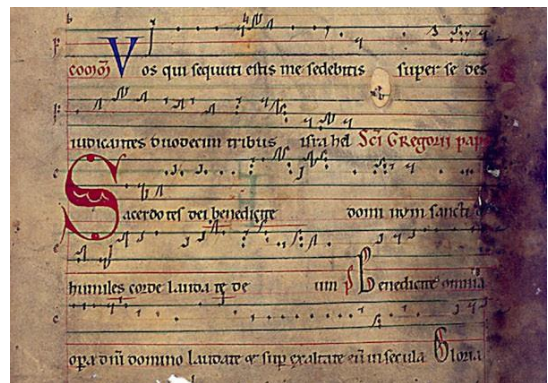 Vos qui sequuti estis me sedebitis super se des
iudicantes duodecim tribus israhel Sci Gregorii pap
Sacerdotes dei benedicite domi num sancti
humiles corde lauda te de um Benedicite omnia
opera dni domino laudate & sup exaltate eu in secula Gloria